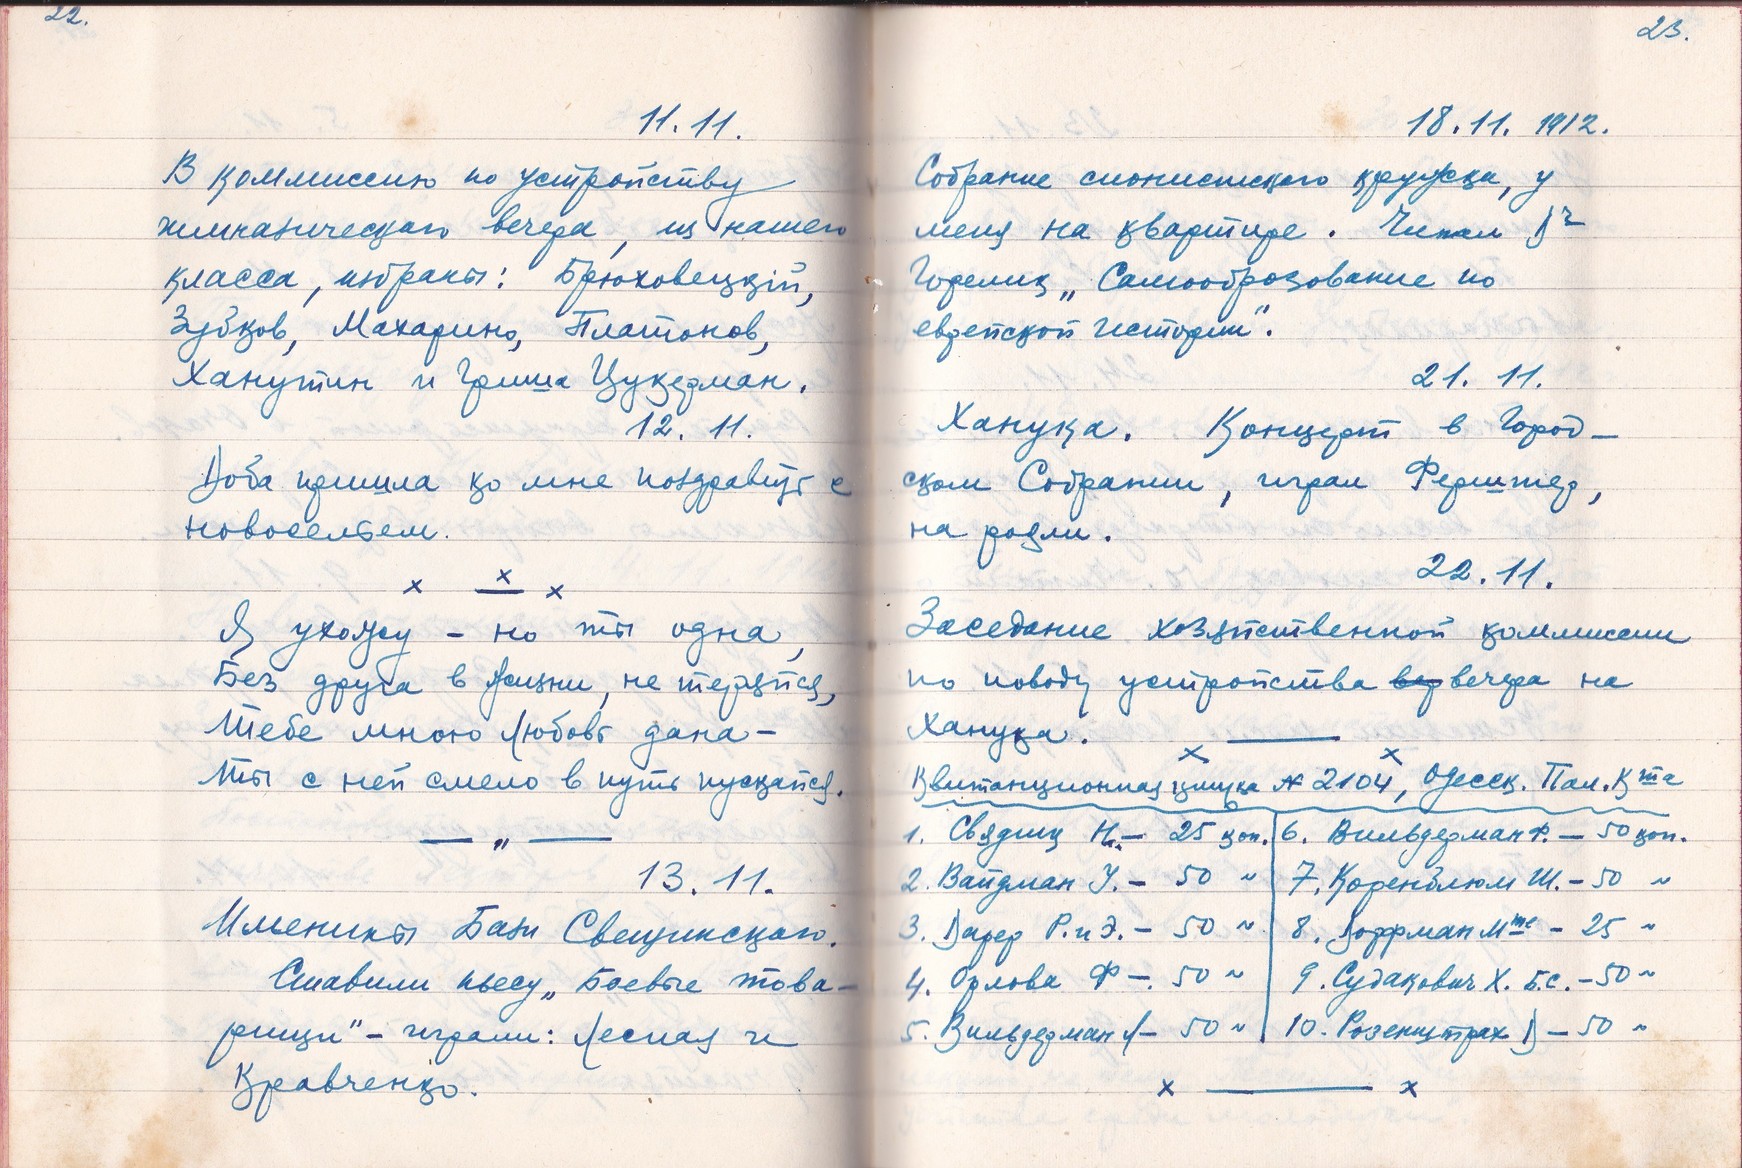 22.
11.11.
В коммиссию по устройству
гимназического вечера, из нашего
класса, избраны: Брюховецкий,
Зубков, Махарино, Платонов,
Ханутин и Гриша Цукерман.
12.11.
Доба пришла ко мне поздравить с
новосельем.
x x x
Я ухожу – но ты одна,
Без друга в жизни, не теряйся,
Тебе мною любовь дана –
Ты с ней смело в путь пускайся.
— „ —
13.11.
Именины Бази Свещинского.
Ставили пьесу „Боевые това-
рищи" – играли: Лесная и
Кравченко.
23.
18.11. 1912.
Собрание сионистского кружка, у
меня на квартире. Читал Дг
Горелик „Самообразование по
еврейской истории".
21. 11.
Ханука. Концерт в Город-
ском Собрании, играл
на рояли.
22.11.
Заседание хозяйственной коммиссии
по поводу устройства вечера на
Ханука.
x — x
Квитанционная книжка № 2104, Одесск. Пал. Кта
1. Свядищ Н. – 25 коп. 6. Вильдерман Ф. – 50 коп.
2. Вайдман У. – 50 " 7. Коренблюм Ш. – 50 "
3. Дарер Р. и Э. – 50 " 8. Дорфман Мme – 25 "
4. Орлова Ф –. 50 " 9. Судакович Х. Б.С. – 50 "
5. Вильдерман Л – 50 " 10. Розенштрах Д – 50 "
x — x